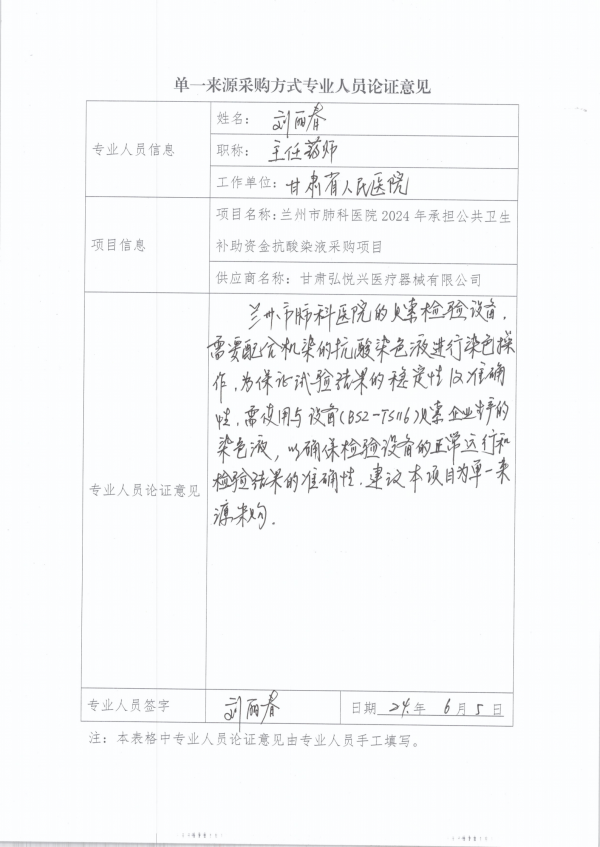 单一来源采购方式专业人员论证意见
专业人员信息
姓名： 刘丽春
职称： 主任药师
工作单位：甘肃省人民医院
项目信息
项目名称：兰州市肺科医院 2024 年承担公共卫生
补助资金抗酸染液采购项目
供应商名称：甘肃弘悦兴医疗器械有限公司
专业人员论证意见
兰州市肺科医院的贝索检验设备，
需要配合机染的抗酸染色液进行染色操
作，为保证试验结果的稳定性及准确
性，需使用与设备(BS2-TS116)贝索企业生产的
染色液，以确保检验设备的正常运行和
检验结果的准确性，建议本项目为单一来
源采购。
专业人员签字 刘丽春 日期 24 年 6 月 5 日
注：本表格中专业人员论证意见由专业人员手工填写。